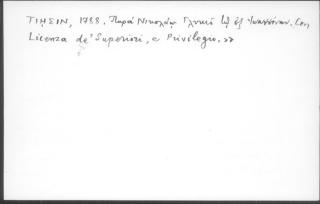 ΤΙΗΣΙΝ, 1788. Παρά Νικολάῳ Γλυκεῖ τῷ ἐξ Ἰωαννίνων. Con
Licenza de' Superiori, e Privilegio. >>